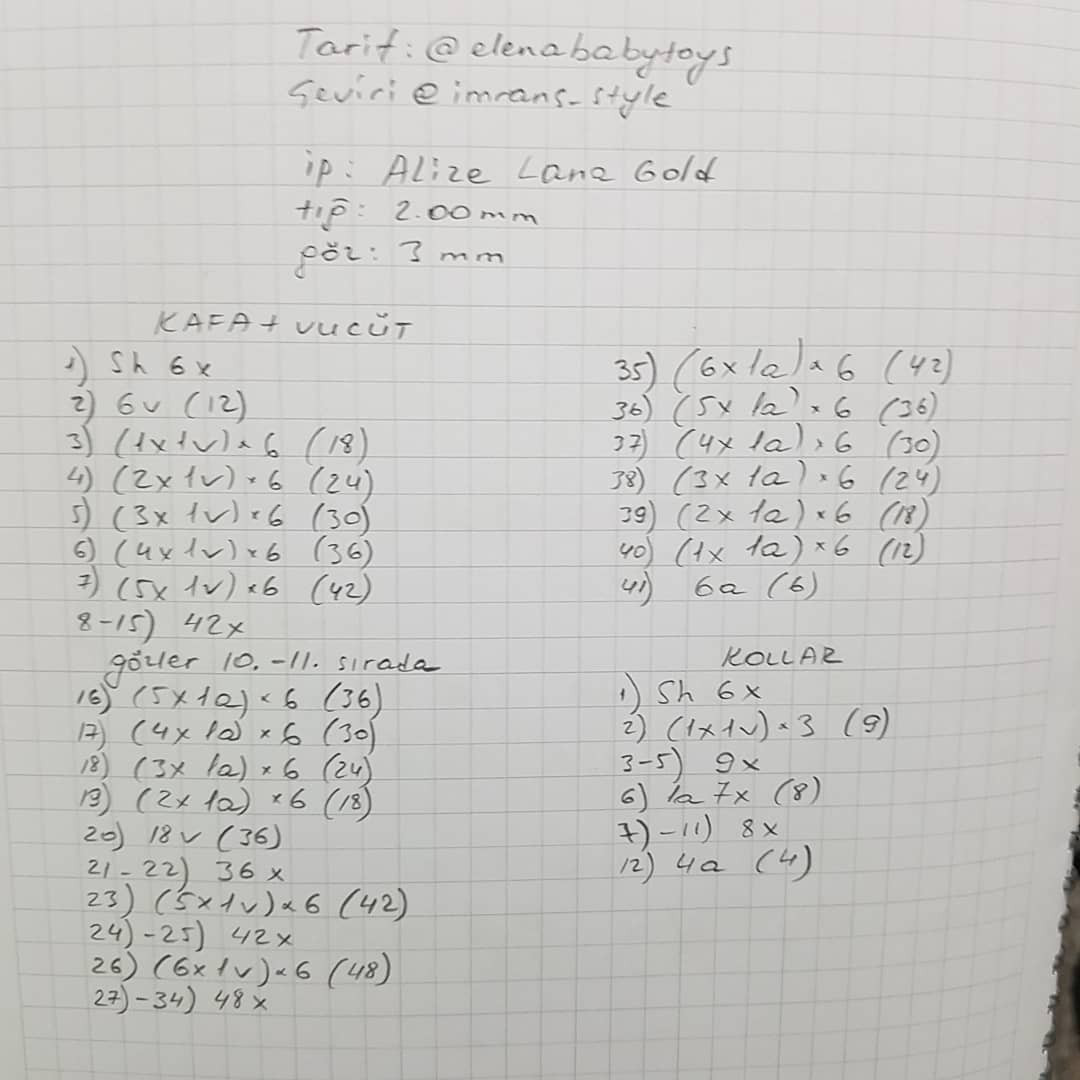 Tarif: @elenababytoys
Çeviri @imrans_style
ip: Alize Lana Gold
tığ: 2.00mm
göz: 3 mm
KAFA + VUCÜT
1) Sh 6x
2) 6v (12)
3) (1x1v)×6 (18)
4) (2x1v)×6 (24)
5) (3x1v)×6 (30)
6) (4x1v)×6 (36)
7) (5x1v)×6 (42)
8-15) 42x
gözler 10.-11. sırada
16) (5x1a)×6 (36)
17) (4x1a)×6 (30)
18) (3x1a)×6 (24)
19) (2x1a)×6 (18)
20) 18v (36)
21-22) 36x
23) (5x1v)×6 (42)
24)-25) 42x
26) (6x1v)×6 (48)
27)-34) 48x
35) (6x1a)×6 (42)
36) (5x1a)×6 (36)
37) (4x1a)×6 (30)
38) (3x1a)×6 (24)
39) (2x1a)×6 (18)
40) (1x1a)×6 (12)
41) 6a (6)
KOLLAR
1) Sh 6x
2) (1x1v)×3 (9)
3-5) 9x
6) 1a 7x (8)
7)-11) 8x
12) 4a (4)